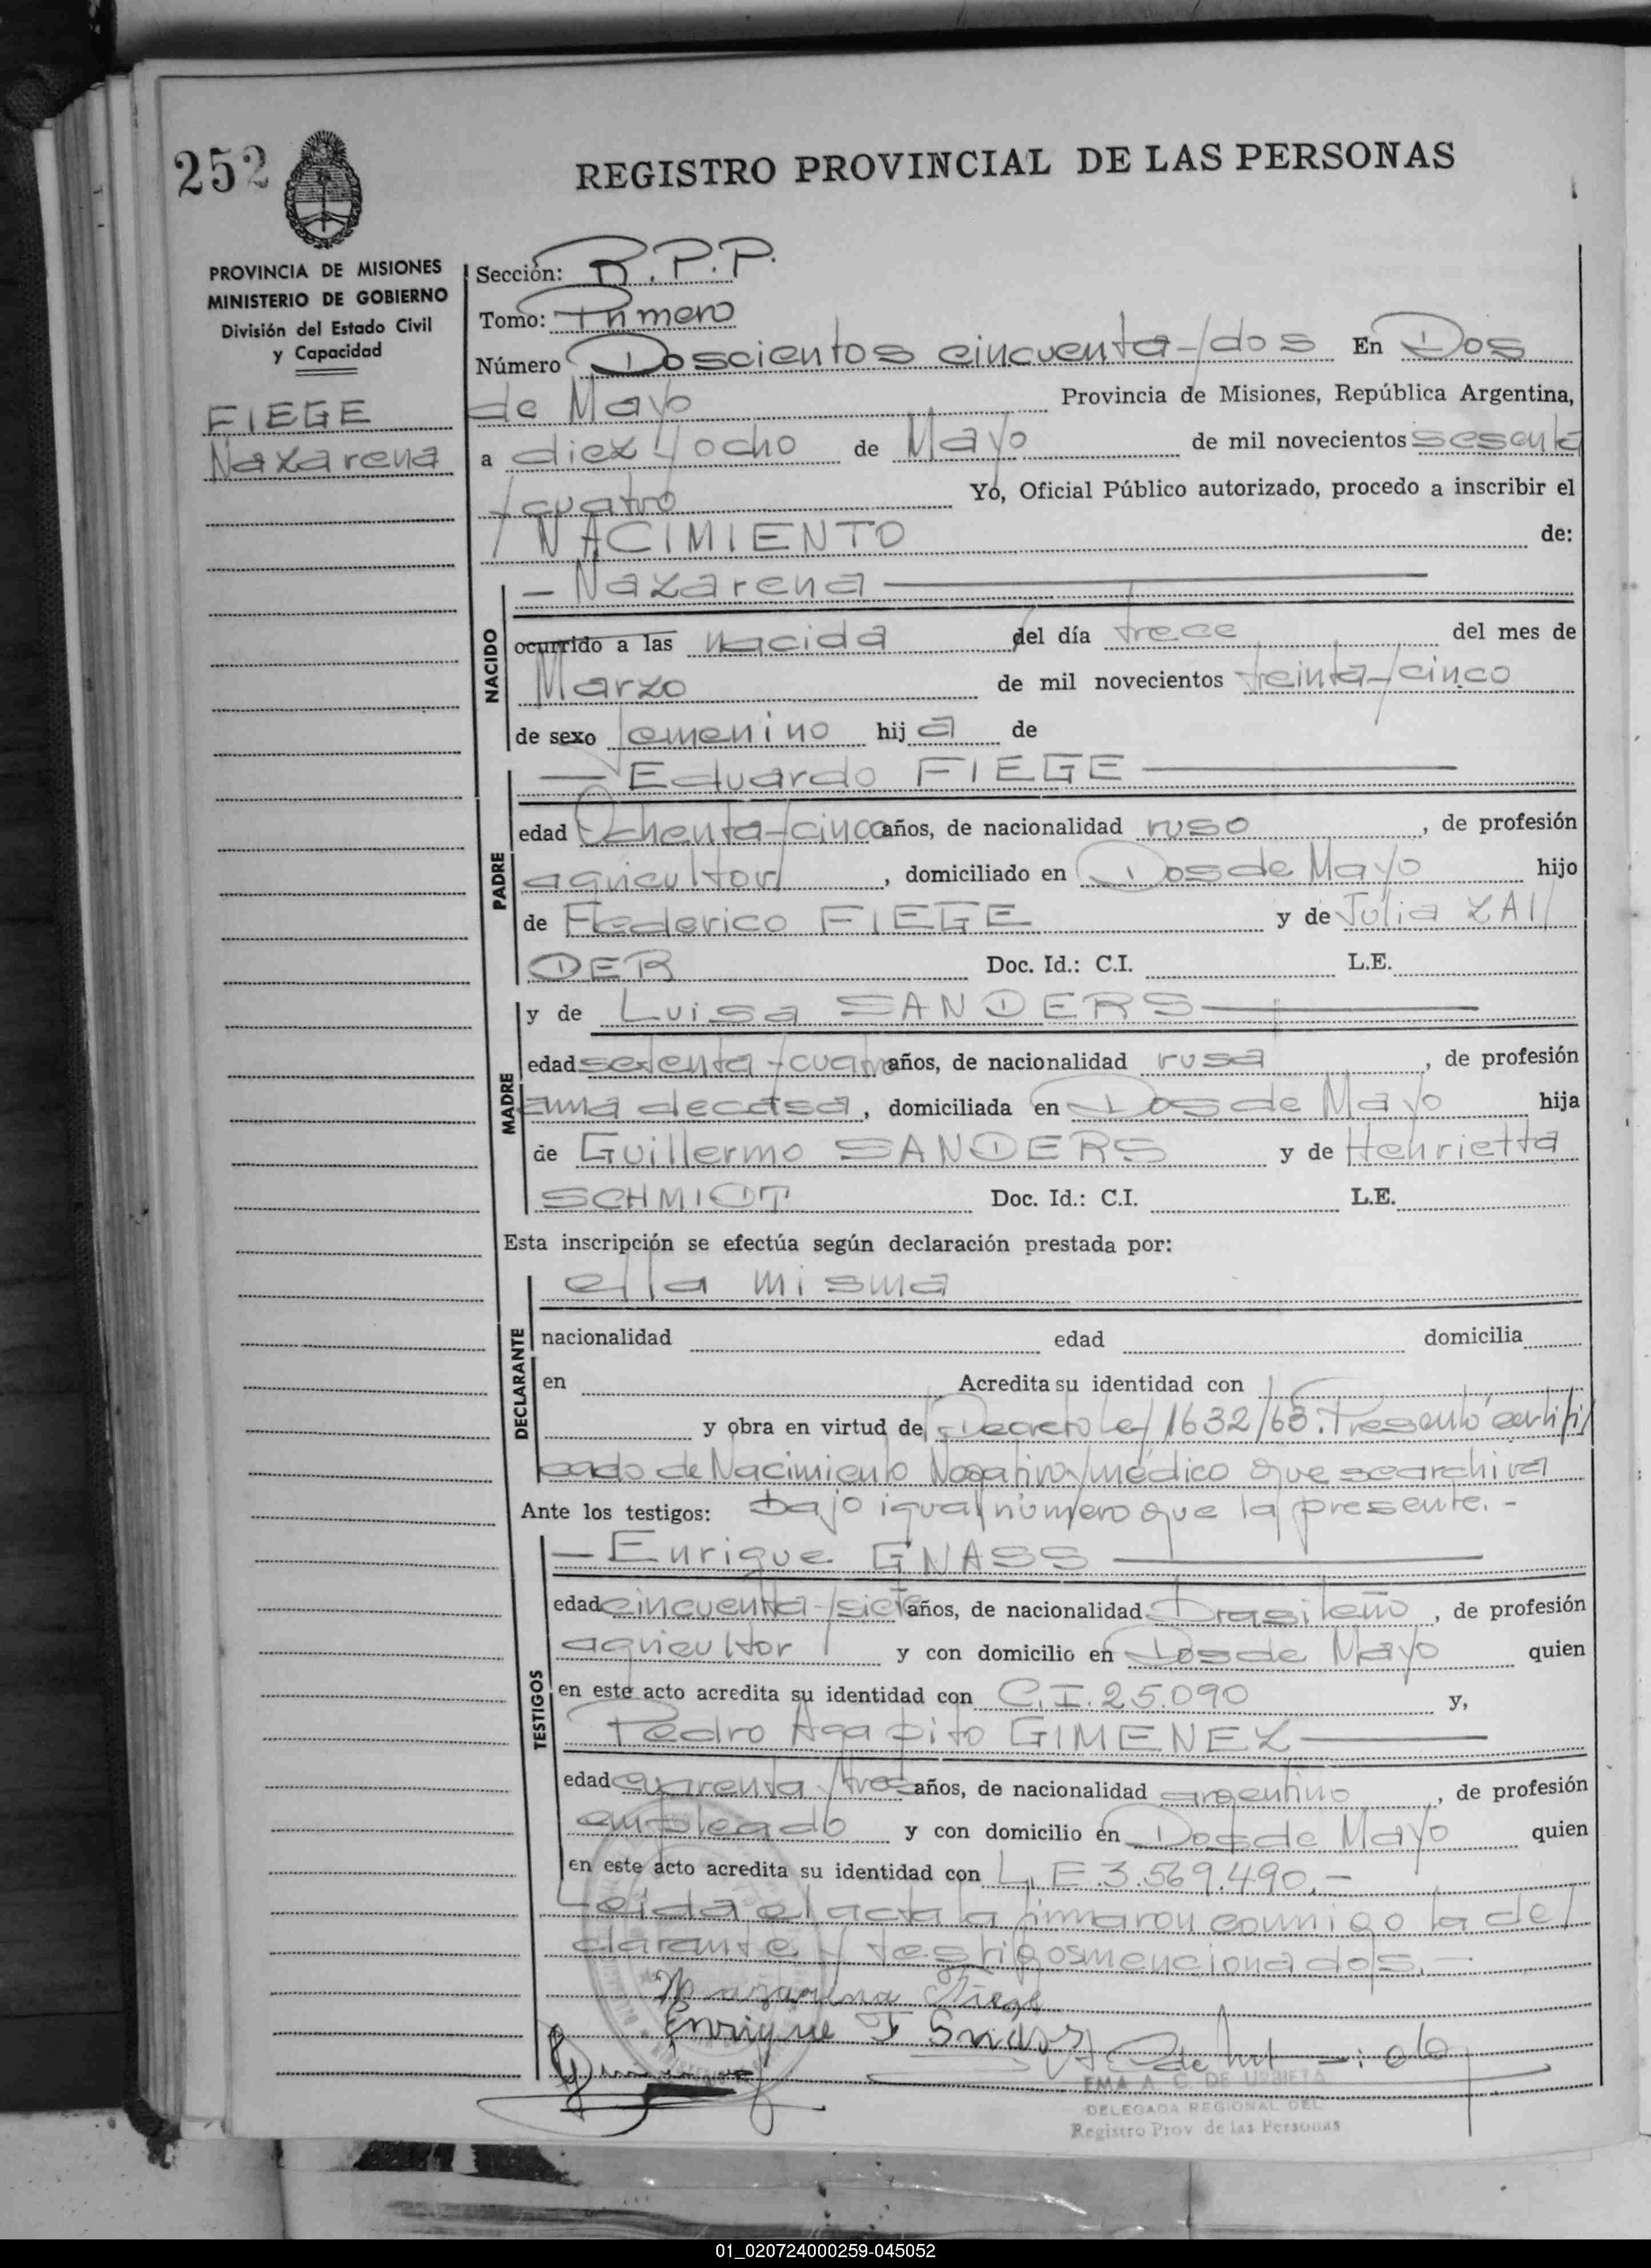 252
REGISTRO PROVINCIAL DE LAS PERSONAS
PROVINCIA DE MISIONES
MINISTERIO DE GOBIERNO
División del Estado Civil
y Capacidad
FIEGE
Nazarena
Sección: R.P.P.
Tomo: Primero
Número Doscientos cincuenta/dos En Dos
de Mayo Provincia de Misiones, República Argentina,
a diez y ocho de Mayo de mil novecientos sesenta
/cuatro Yo, Oficial Público autorizado, procedo a inscribir el
NACIMIENTO de:
NACIDO
- Nazarena
ocurrido a las nacida del día trece del mes de
Marzo de mil novecientos treinta/cinco
de sexo femenino hija de
PADRE
Eduardo FIEGE
edad Ochenta/cinco años, de nacionalidad ruso, de profesión
agricultor, domiciliado en Dos de Mayo hijo
de Federico FIEGE y de Julia ZAI/
DER Doc. Id.: C.I. L.E.
MADRE
y de Luisa SANDERS
edad setenta/cuatro años, de nacionalidad rusa, de profesión
ama de casa, domiciliada en Dos de Mayo hija
de Guillermo SANDERS y de Henrietta
SCHMIDT Doc. Id.: C.I. L.E.
Esta inscripción se efectúa según declaración prestada por:
DECLARANTE
ella misma
nacionalidad edad domicilia
en Acredita su identidad con
y obra en virtud de Decreto ley 1632/63. Presentó certifi/
cado de Nacimiento Negativo/médico que se archiva
Ante los testigos: bajo igual número que la presente.-
TESTIGOS
- Enrique GNASS
edad cincuenta/siete años, de nacionalidad brasileño, de profesión
agricultor y con domicilio en Dos de Mayo quien
en este acto acredita su identidad con C.I. 25.090 y,
Pedro Agapito GIMENEZ
edad cuarenta/tres años, de nacionalidad argentino, de profesión
empleado y con domicilio en Dos de Mayo quien
en este acto acredita su identidad con L.E.3.569.490.-
Leida el acta la firmaron conmigo la de/
clarante y testigos mencionados.-
Nazarena Fiege
Enrique
EMA A. C. DE URBIETA
DELEGADA REGIONAL DEL
Registro Prov de las Personas
01_020724000259-045052